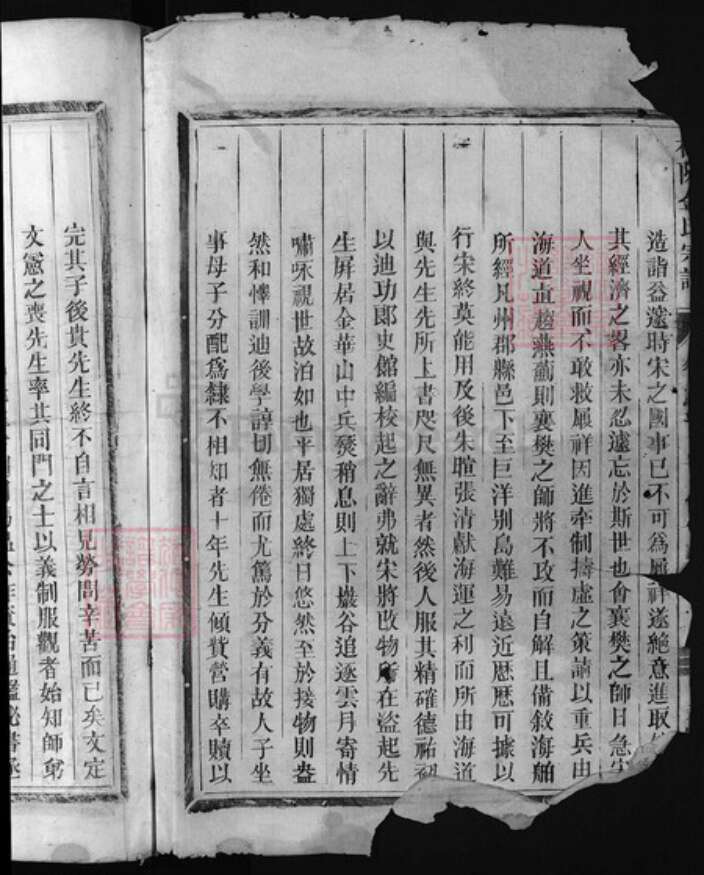 造詣益邃時宋之國事已不可為履祥遂絕意進取
其經濟之畧亦未忍遽忘於斯世也會襄樊之師日急宋
人坐視而不敢救履祥因進牽制擣虛之策請以重兵由
海道直趨燕薊則襄樊之師將不攻而自解且備敘海舶
所經凡州郡縣邑下至巨洋别島難易遠近歷歷可據以
行宋終莫能用及後朱瑄張清獻海運之利而所由海道
與先生先所上書咫尺無異者然後人服其精確德祐初
以迪功郎史館編校起之辭弗就宋將改物所在盜起先
生屏居金華山中兵燹稍息則上下巖谷追逐雲月寄情
嘯咏視世故泊如也平居獨處終日悠然至於接物則盎
然和懌訓迪後學諄切無倦而尤篤於分義有故人子坐
事母子分配為隸不相知者十年先生傾貲營購卒贖以
完其子後貴先生終不自言相見勞問辛苦而已矣文定
文憲之喪先生率其同門之士以義制服觀者始知師弟
金氏宗譜